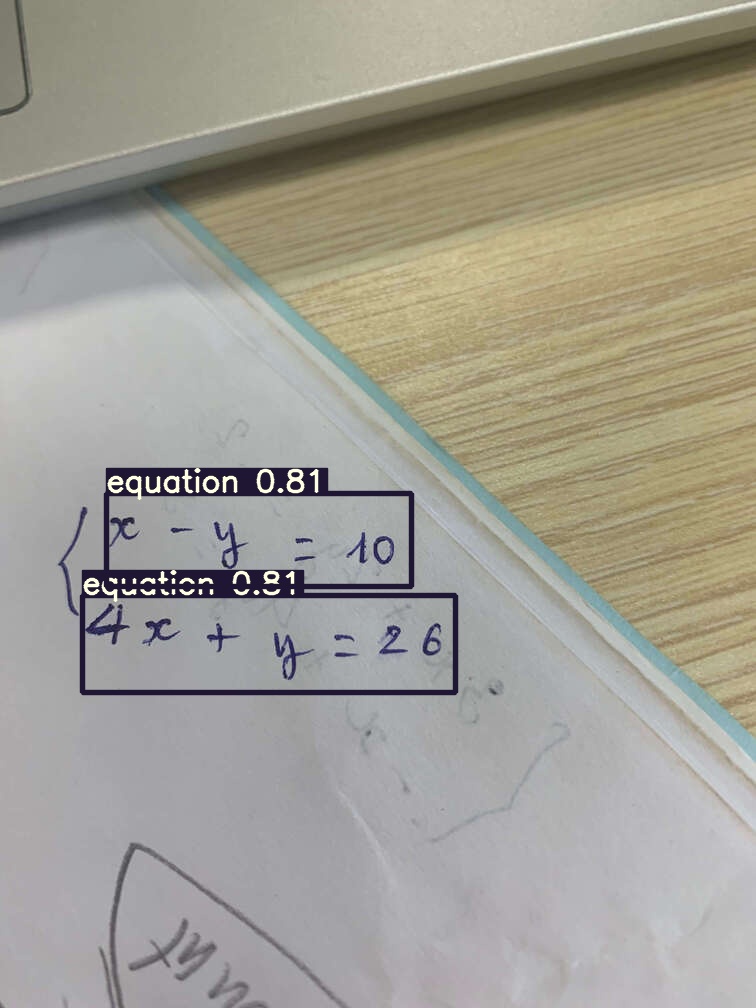 equation 0.81
x - y = 10
equation 0.81
4x + y = 26